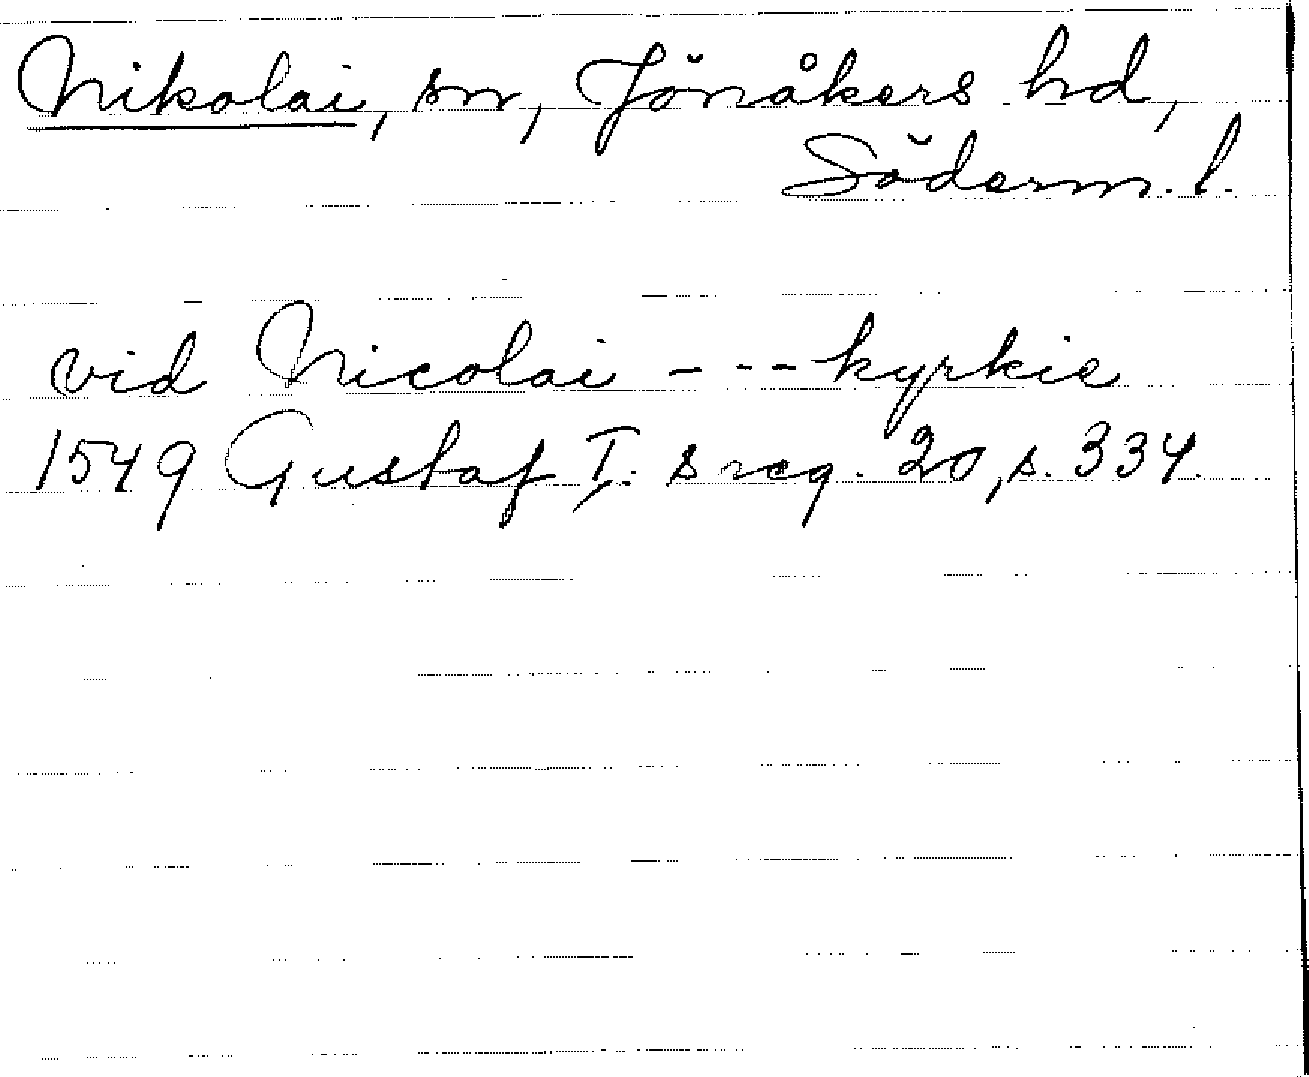 Nikolai, sn, Jönåkers hd,
Söderm. l.
vid Nicolai - - - - kyrkie
1549 Gustaf I:s reg. 20, s. 334.